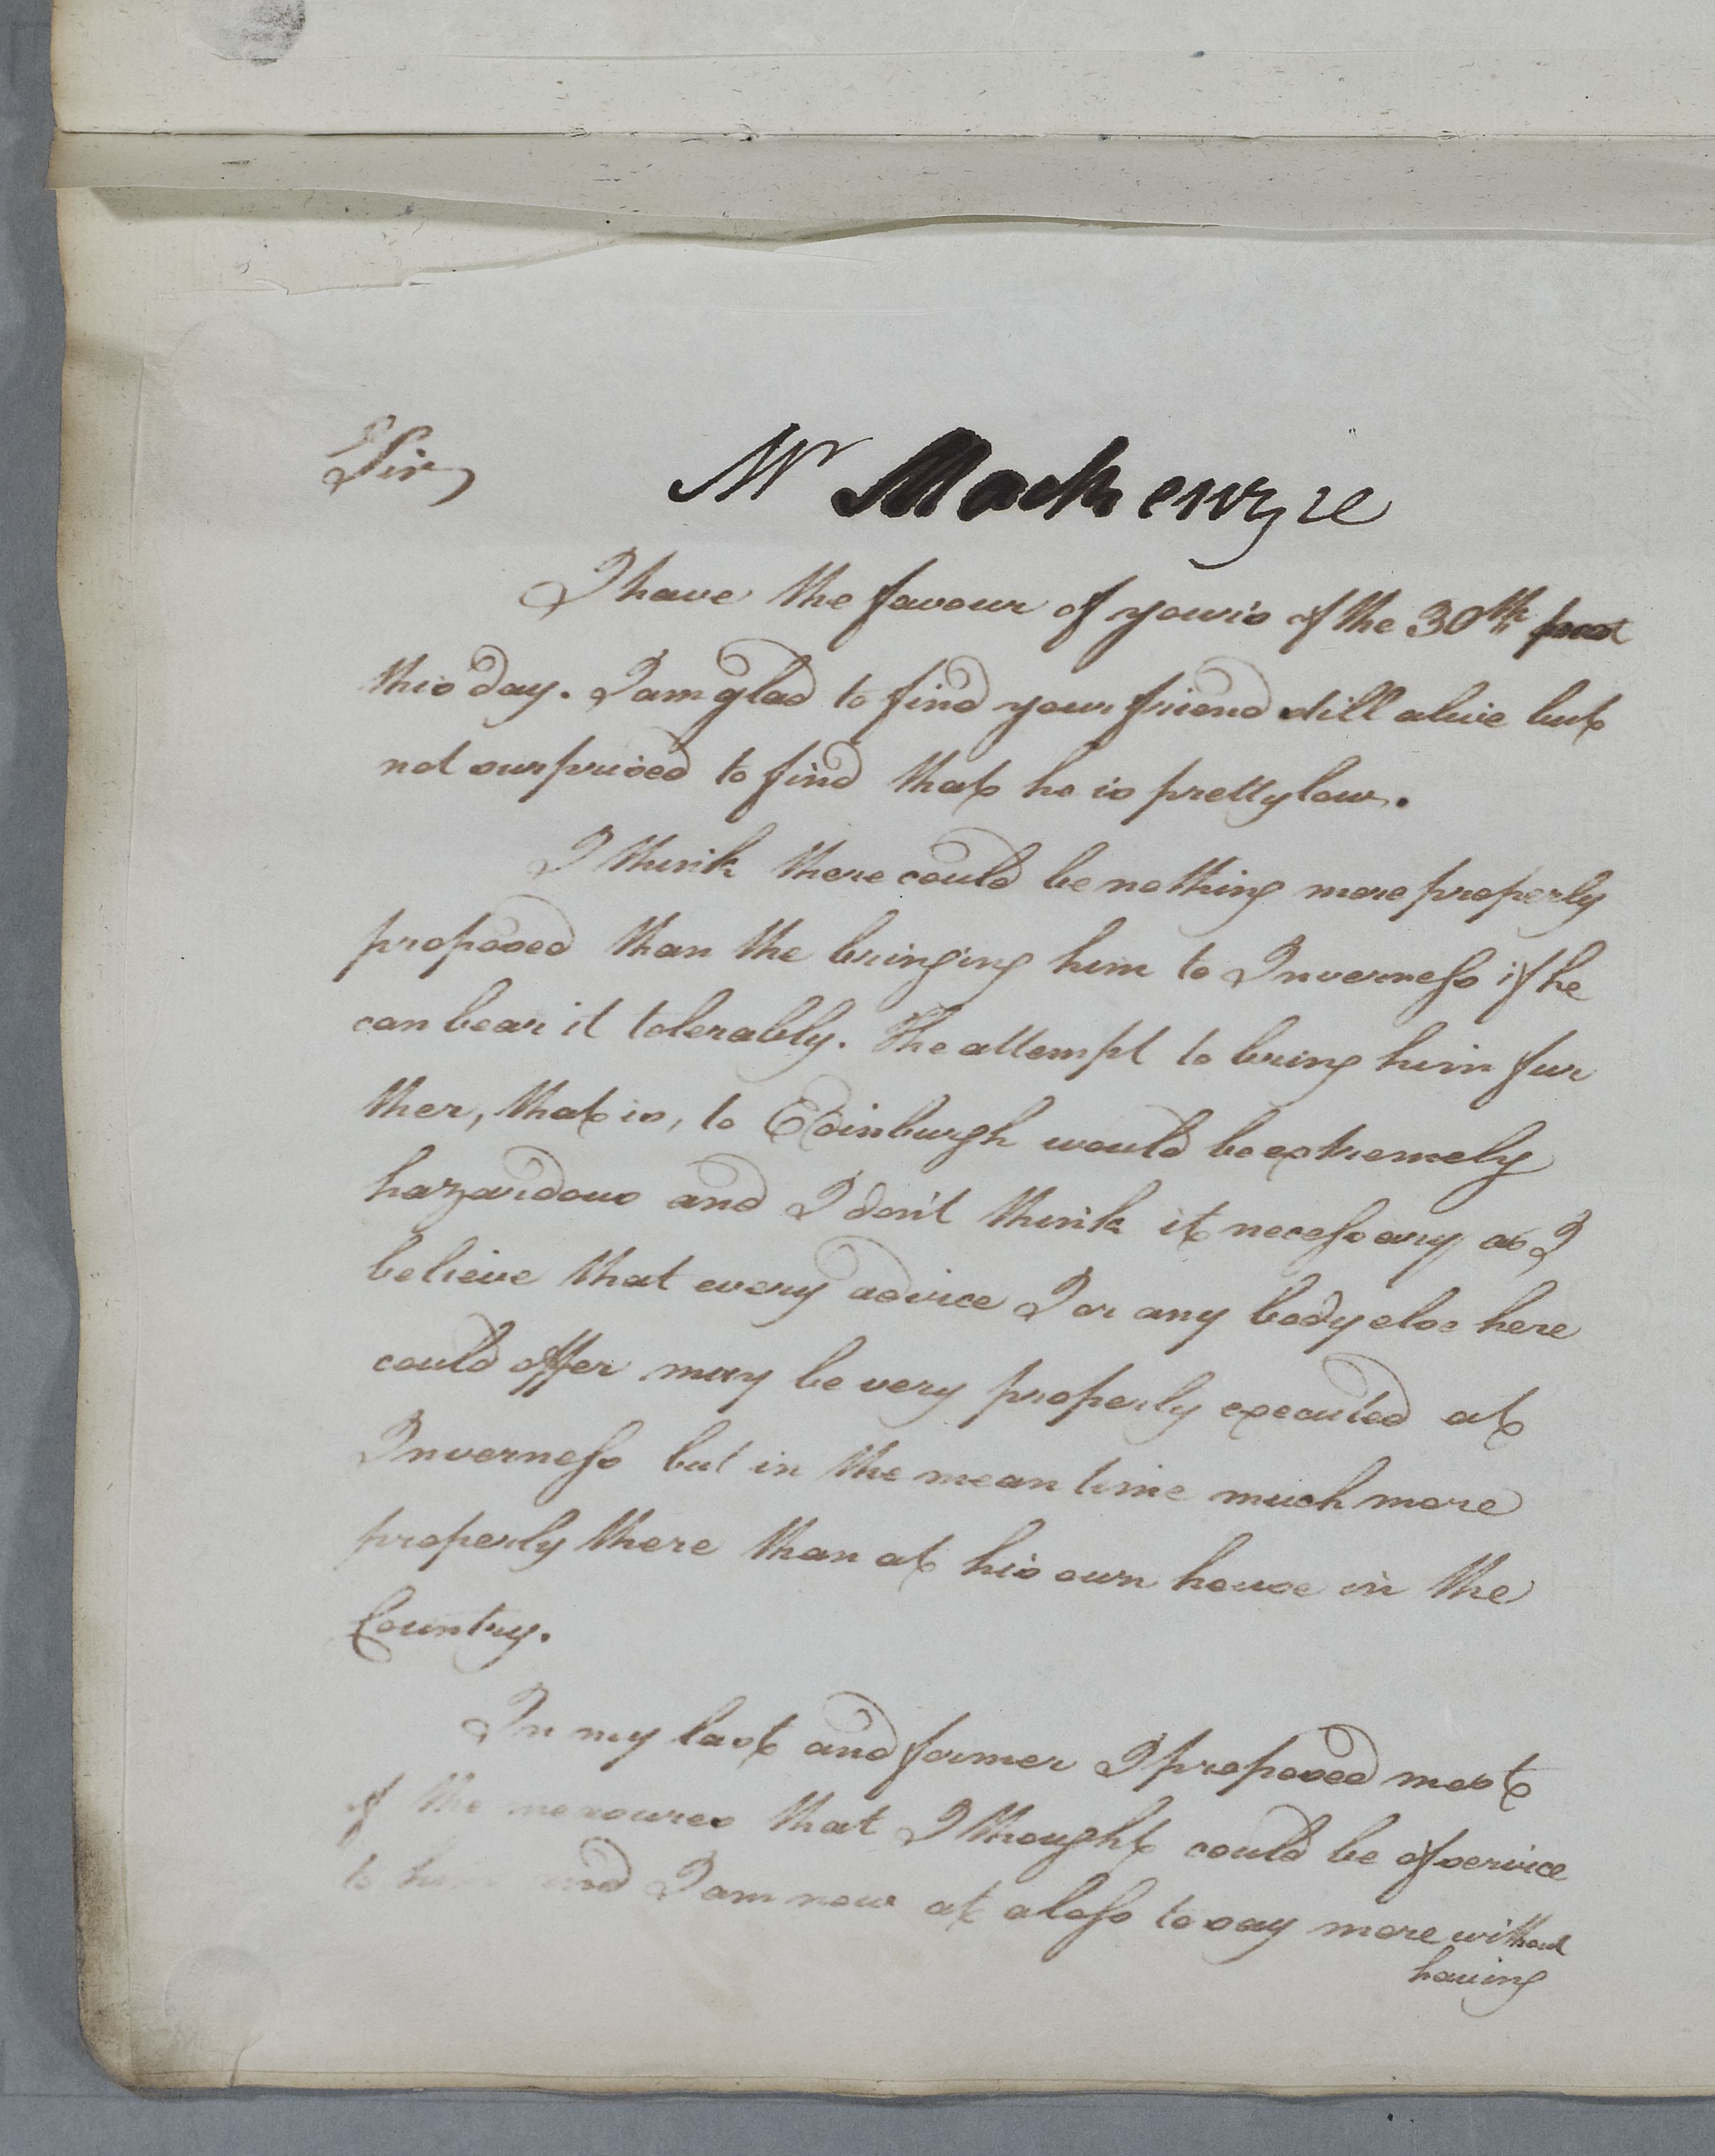 Sir,
Mr Mackenzie
I have the favour of your's of the 30th past
this day. I am glad to find your friend still alive but
not surprised to find that he is pretty low.
I think there could be nothing more properly
proposed than the bringing him to Inverness if he
can bear it tolerably. The attempt to bring him fur
ther, that is, to Edinburgh would be extremely
hazardous and I don't think it necessary as I
believe that every advice I or any body else here
could offer may be very properly executed at
Inverness but in the mean time much more
properly there than at his own house in the
Country.
In my last and former I proposed most
of the measures that I thought could be of service
to him and I am now at a loss to say more without
having